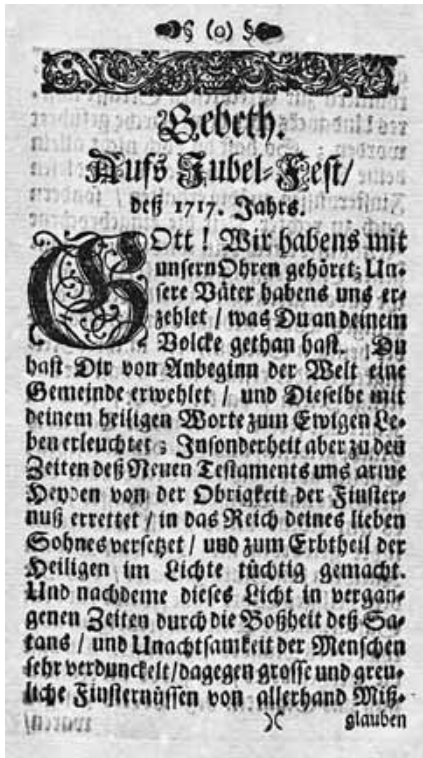 (o)
Gebeth.
Aufs Jubel-Fest/
deß 1717. Jahrs.
GOtt! Wir habens mit
unsern Ohren gehöret; Un-
sere Väter habens uns er-
zehlet / was Du an deinem
Volcke gethan hast. Du
hast Dir von Anbeginn der Welt eine
Gemeinde erwehlet / und Dieselbe mit
deinem heiligen Worte zum Ewigen Le-
ben erleuchtet; Insonderheit aber zu den
Zeiten deß Neuen Testaments uns arme
Heyden von der Obrigkeit der Finster-
nuß errettet / in das Reich deines lieben
Sohnes versetzet / und zum Erbtheil der
Heiligen im Lichte tüchtig gemacht.
Und nachdeme dieses Licht in vergan-
genen Zeiten durch die Boßheit deß Sa-
tans / und Unachtsamkeit der Menschen
sehr verdunckelt / dagegen grosse und greu-
liche Finsternüssen von allerhand Miß-
)( glauben